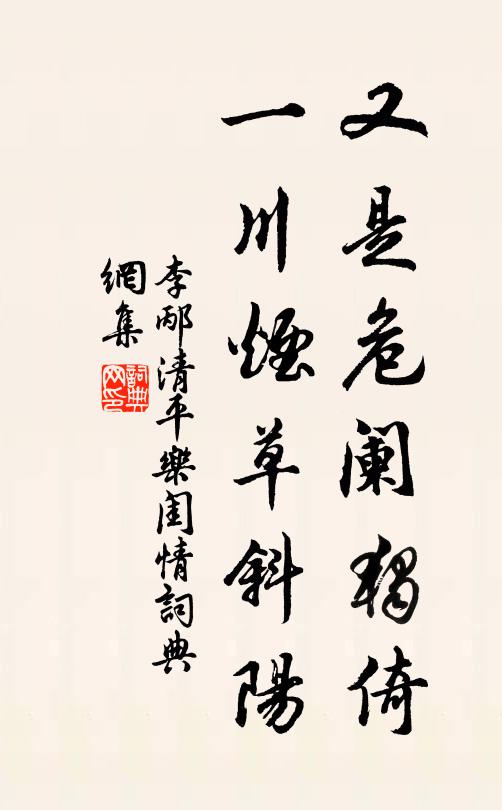 又是危阑独倚
一川烟草斜陽
李邴清平樂闺情詞典
網集
詞典
网印